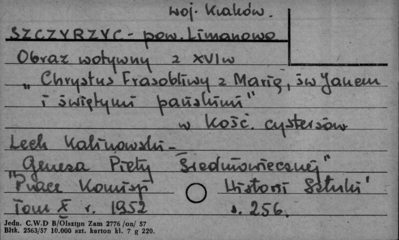 woj. Kraków.
SZCZYRZYC - pow. Limanowa
Obraz wotywny z XVI w
"Chrystus Frasobliwy z Marią, św Janem
i świętymi pańskimi"
w kość. cystersów
Lech Kalinowski -
Geneza Piety Średniowiecznej"
"Prace Komisji Historii Sztuki"
Tom X r. 1952 s. 256.
Jedn. C.W.D B/Olsztyn Zam 2776 /on/ 57
Błtk. 2563/57 10.000 szt. karton kl. 7 g 220.